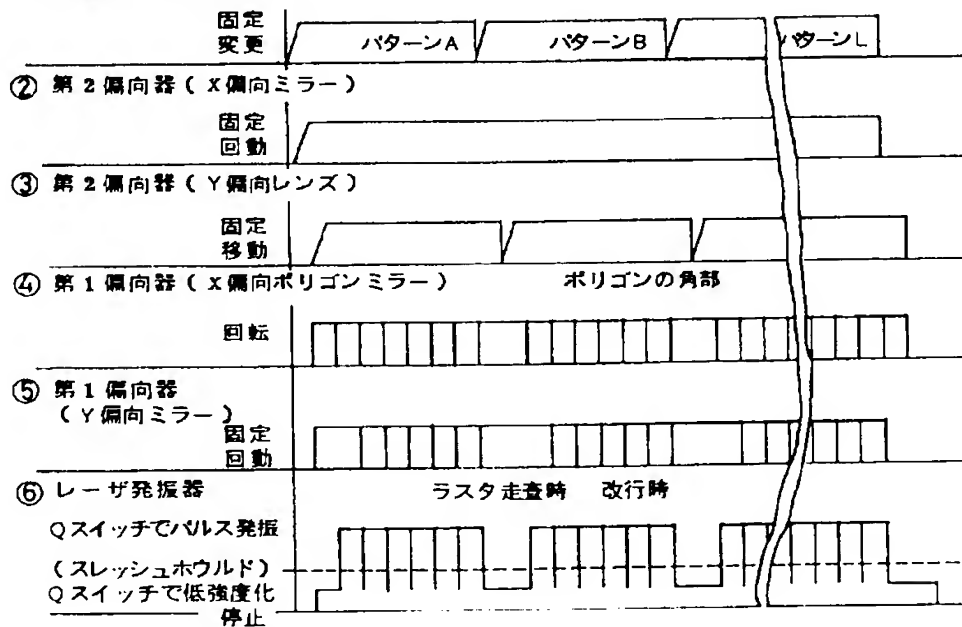 固定
変更
パターンA
パターンB
パターンL
② 第2偏向器(X偏向ミラー)
固定
回動
③ 第2偏向器(Y偏向レンズ)
固定
移動
④ 第1偏向器(X偏向ポリゴンミラー) ポリゴンの角部
回転
⑤ 第1偏向器
(Y偏向ミラー)
固定
回動
⑥ レーザ発振器 ラスタ走査時 改行時
Qスイッチでパルス発振
(スレッシュホウルド)
Qスイッチで低強度化
停止